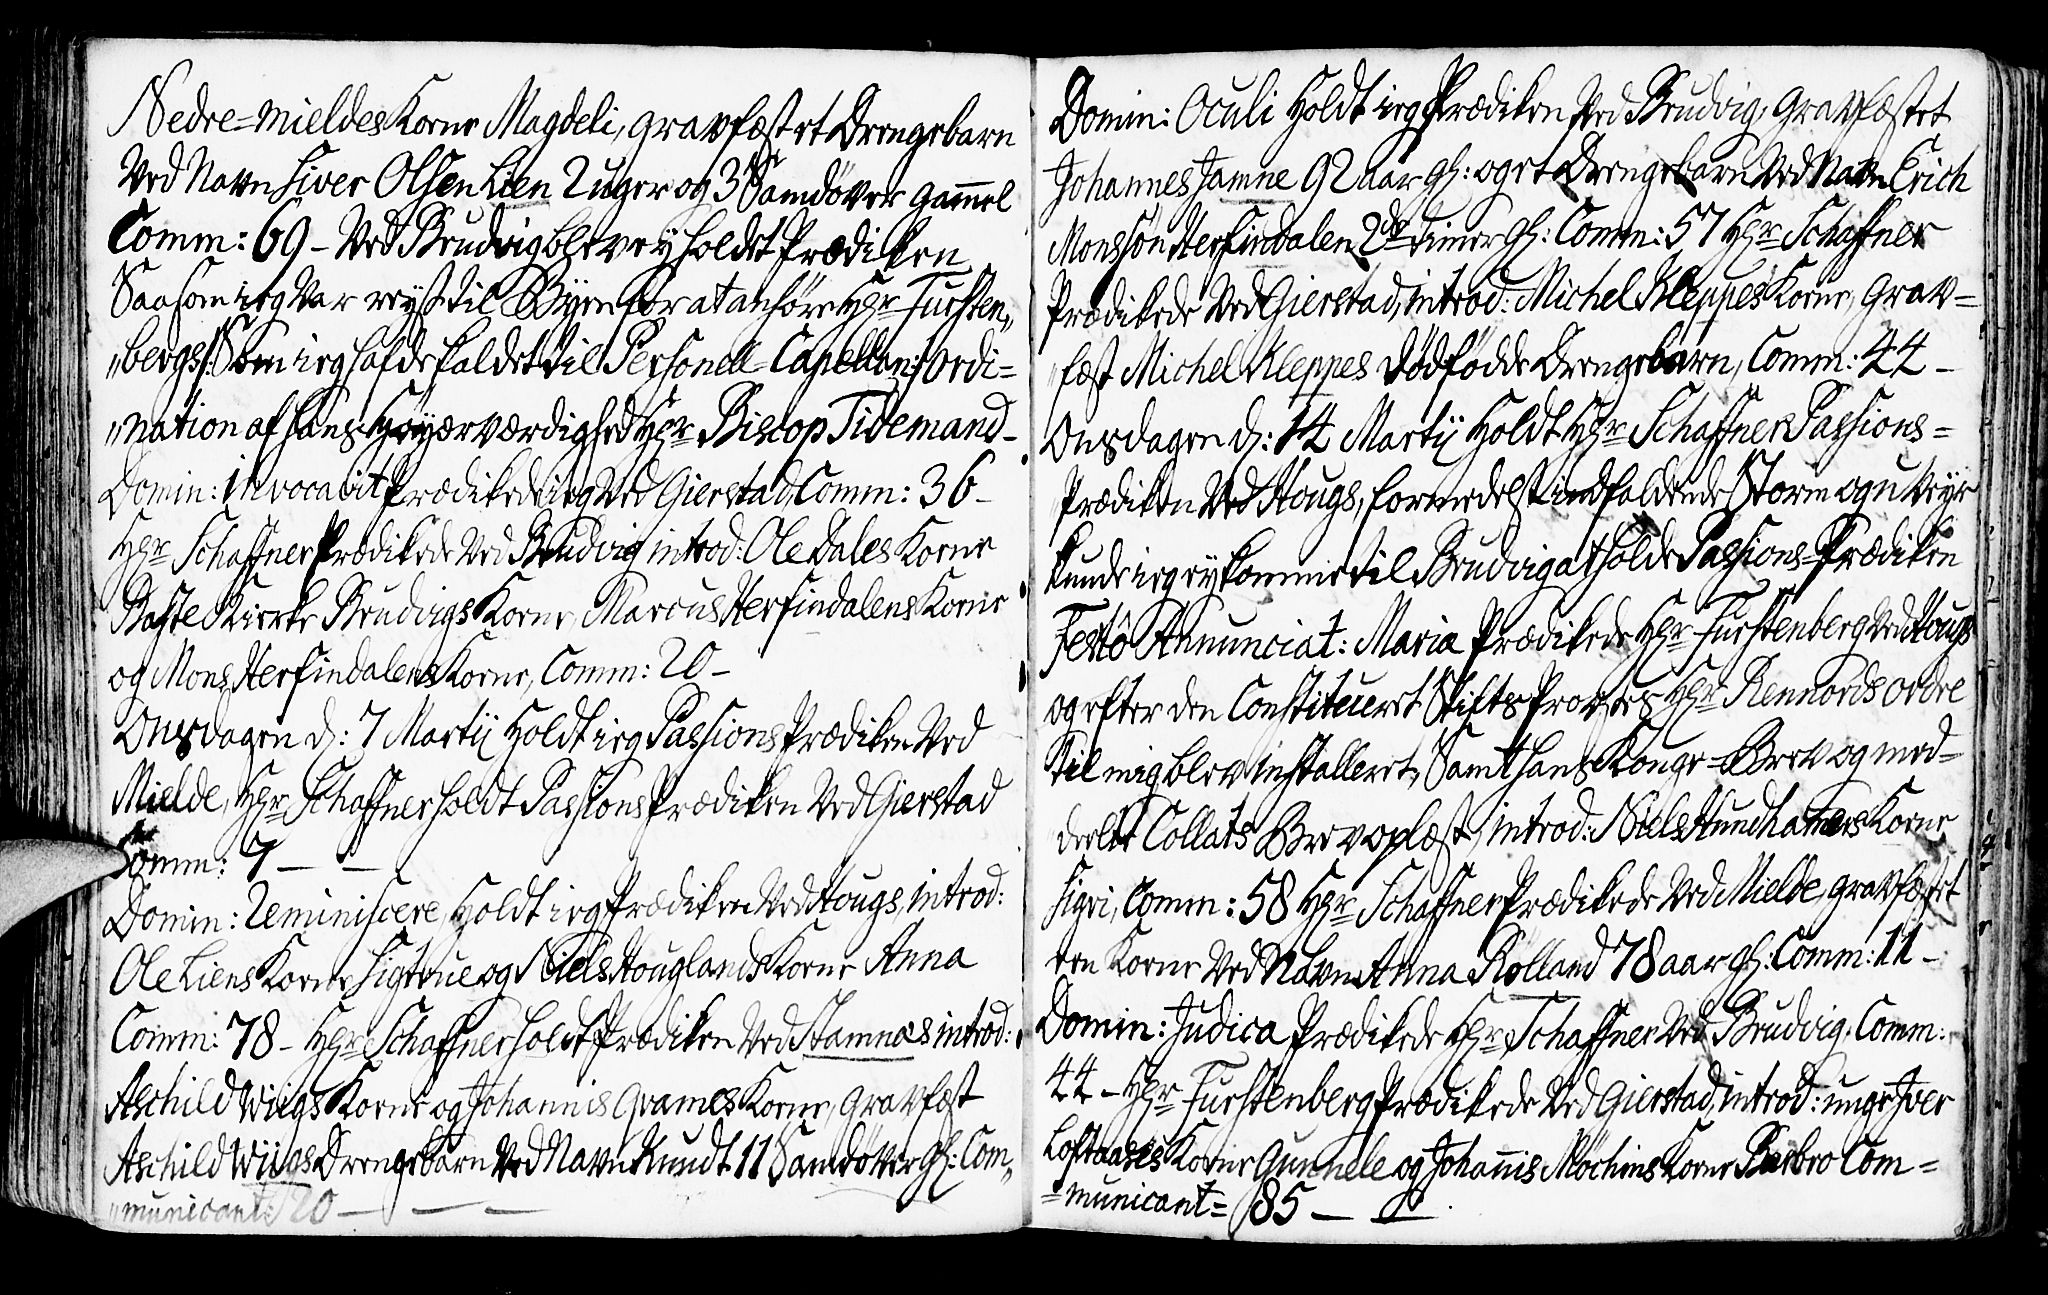 Nedre=Mieldes Kone Magdeli, gravfæstet Drengebarn
Ved Navn Siver Olsen Lien 2 uger og 3 Samdøver gam̄el
Comm: 69 – Ved Brudvig blev ey holdet Prædiken
Saasom ieg Var reyst til Byen for at anhöre Hr Fuchsten„
„bergs /: Som ieg hafde kaldet til Personell=Capellan :/ ordi=
„nation af hans Höyærværdighed Hr Biscop Tidemand –
Domin: invocavit Prædikede ieg Ved Gierstad, Comm: 36 –
Hr Schaffner Prædikede Ved Brudvig introd: Ole Dales Kone
Baste Kierke Brudvigs Kone, Marcus Herfindalens Kone
og Mons Herfindalens Kone, Comm: 20 –
Onsdagen d: 7 Martij Holdt ieg Passions Prædiken Ved
Mielde, Hr Schaffner holdt Passions Prædiken Ved Gierstad
Comm: 7 –
Domin: Reminiscere, Holdt ieg Prædiken Ved Hougs, introd:
Ole Liens Kone Sigtrue og Niels Houglands Kone Anna
Comm: 78 – Hr Schaffner holdt Prædiken Ved Stamnæs introd:
Aschild Wiigs Kone og Johannis Qvames Kone, gravfæst
Aschild Wiigs Drengebarn Ved Navn Knudt 11 Samdøver gl: Com„
„municant: 20 –
Domin: Oculi Holdt ieg Prædiken Ved Brudvig, gravfæstet
Johannes Jamne 92 aar gl: og et Drengebarn Ved Navn Erich
Monssön Herfindalen 2de timer gl: Comm: 57 Hr Schaffner
Prædikede Ved Gierstad, introd: Michel Kleppes Kone, grav=
„fæst Michel Kleppes dödfödde Drengebarn, Comm: 44 –
Onsdagen d: 14 Martij Holdt Hr Schaffner Passions=
Prædiken Ved Hougs, formedelst indfaldende Storm og u Veyr
kunde ieg ey komme til Brudvig at holde Passions-Prædiken
Festô Annunciat: Maria Prædikede Hr Fuchstenberg Ved Hougs
og efter den Constitueret Stifts Provstes Hr Rennords ordre
til mig blev installeret, Samt hans Konge=Brev og med=
deelte Collats Brev oplæst, introd: Niels Hundhamers Kone
Sigri, Comm: 58 Hr Schaffner Prædikede Ved Mielde, gravfæstet
een Kone Ved Navn Anna Rölland 78 aar gl: Comm: 11 –
Domin: Judica Prædikede Hr Schaffner Ved Brudvig, Comm:
44 – Hr Fuchstenberg Prædikede Ved Gierstad, introd: unge Iver
Loftaases Kone Gunnele og Johan̄is Möchins Kone Barbro Com=
=municant= 85 –